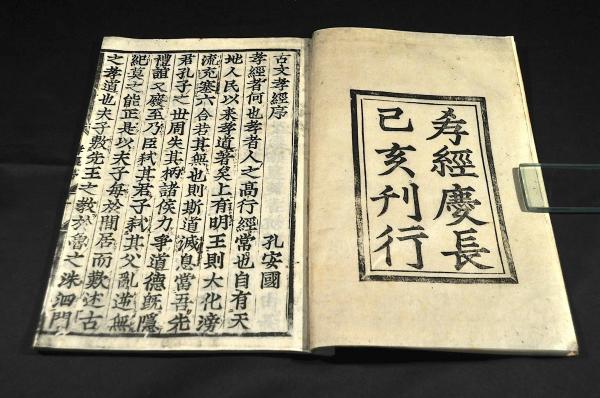 孝經慶長
己亥刊行
古文孝經序 孔安國
孝經者何也孝者人之高行經常也自有天
地人民以來孝道著矣上有明王則大化滂
流充塞六合若其無也則斯道滅息當吾先
君孔子之世周失其柄諸侯力爭道德既隱
禮誼又廢至乃臣弑其君子弑其父亂逆無
紀莫之能正是以夫子每於閒居而歎述古
之孝道也夫子敷先王之教於魯之洙泗門